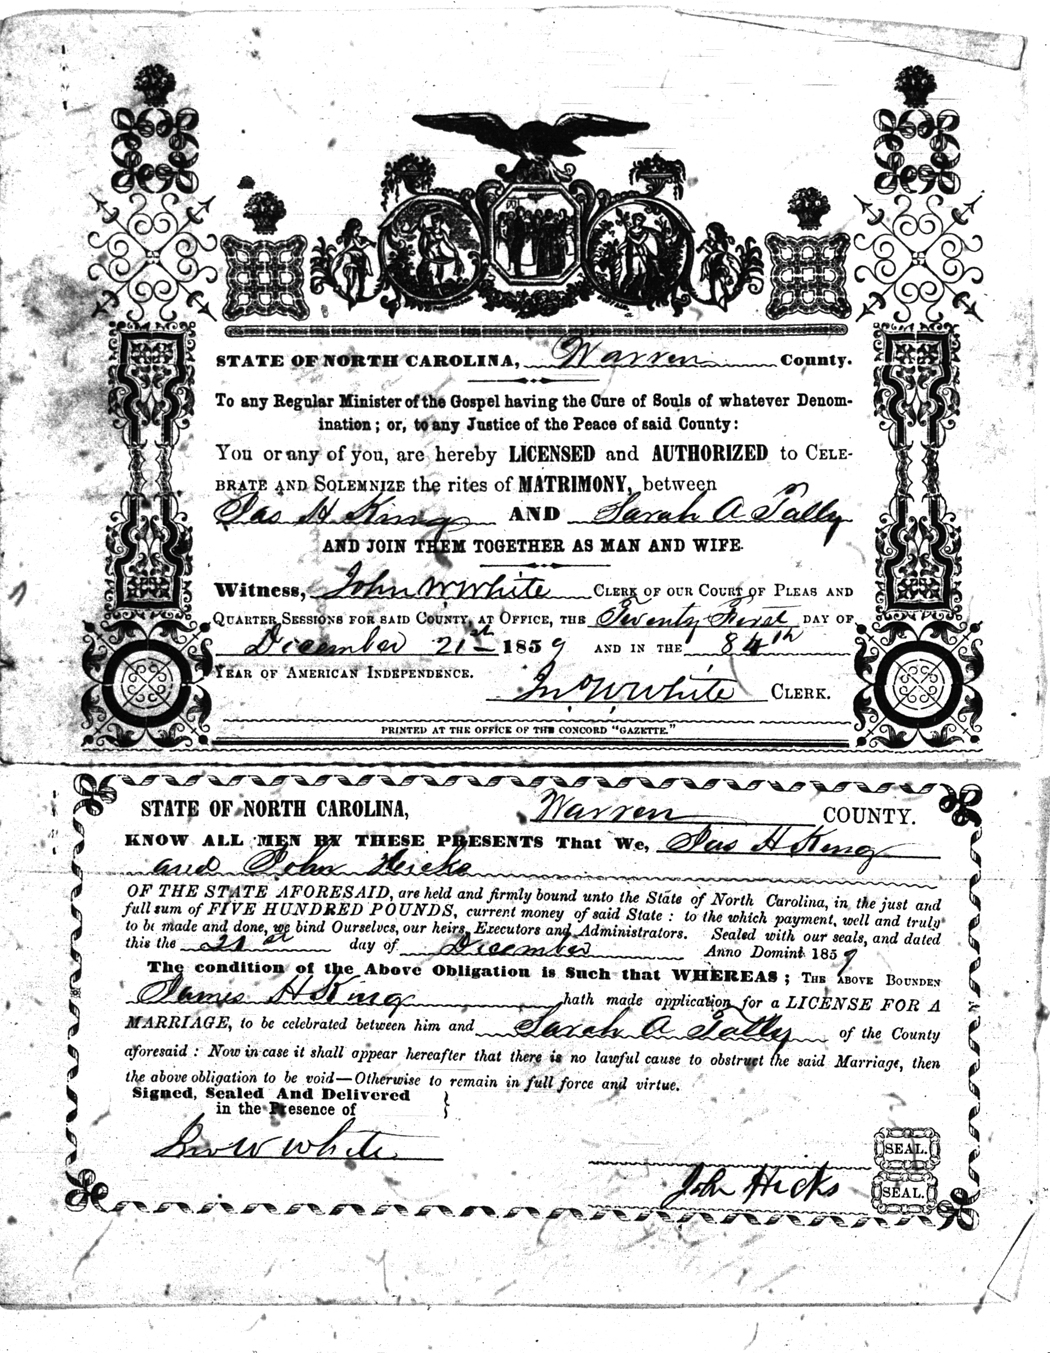 STATE OF NORTH CAROLINA, Warren County.
To any Regular Minister of the Gospel having the Cure of Souls of whatever Denom-
ination; or, to any Justice of the Peace of said County:
You or any of you, are hereby LICENSED and AUTHORIZED to CELE-
BRATE AND SOLEMNIZE the rites of MATRIMONY, between
Jas H King AND Sarah A Tally
AND JOIN THEM TOGETHER AS MAN AND WIFE.
Witness, John W White CLERK OF OUR COURT OF PLEAS AND
QUARTER SESSIONS FOR SAID COUNTY, AT OFFICE, THE Twenty First DAY OF
December 21st 1859 AND IN THE 84th
YEAR OF AMERICAN INDEPENDENCE.
Jno W White CLERK.
PRINTED AT THE OFFICE OF THE CONCORD "GAZETTE."
STATE OF NORTH CAROLINA, Warren COUNTY.
KNOW ALL MEN BY THESE PRESENTS That We, Jas H King
and John Hicks
OF THE STATE AFORESAID, are held and firmly bound unto the State of North Carolina, in the just and
full sum of FIVE HUNDRED POUNDS, current money of said State: to the which payment, well and truly
to be made and done, we bind Ourselves, our heirs, Executors and Administrators. Sealed with our seals, and dated
this the 21st day of December Anno Domini 1859
The condition of the Above Obligation is Such that WHEREAS; THE ABOVE BOUNDEN
James H King hath made application for a LICENSE FOR A
MARRIAGE, to be celebrated between him and Sarah A Tally of the County
aforesaid: Now in case it shall appear hereafter that there is no lawful cause to obstruct the said Marriage, then
the above obligation to be void—Otherwise to remain in full force and virtue.
Signed, Sealed And Delivered
in the Presence of
Jno W White
SEAL.
John Hicks SEAL.